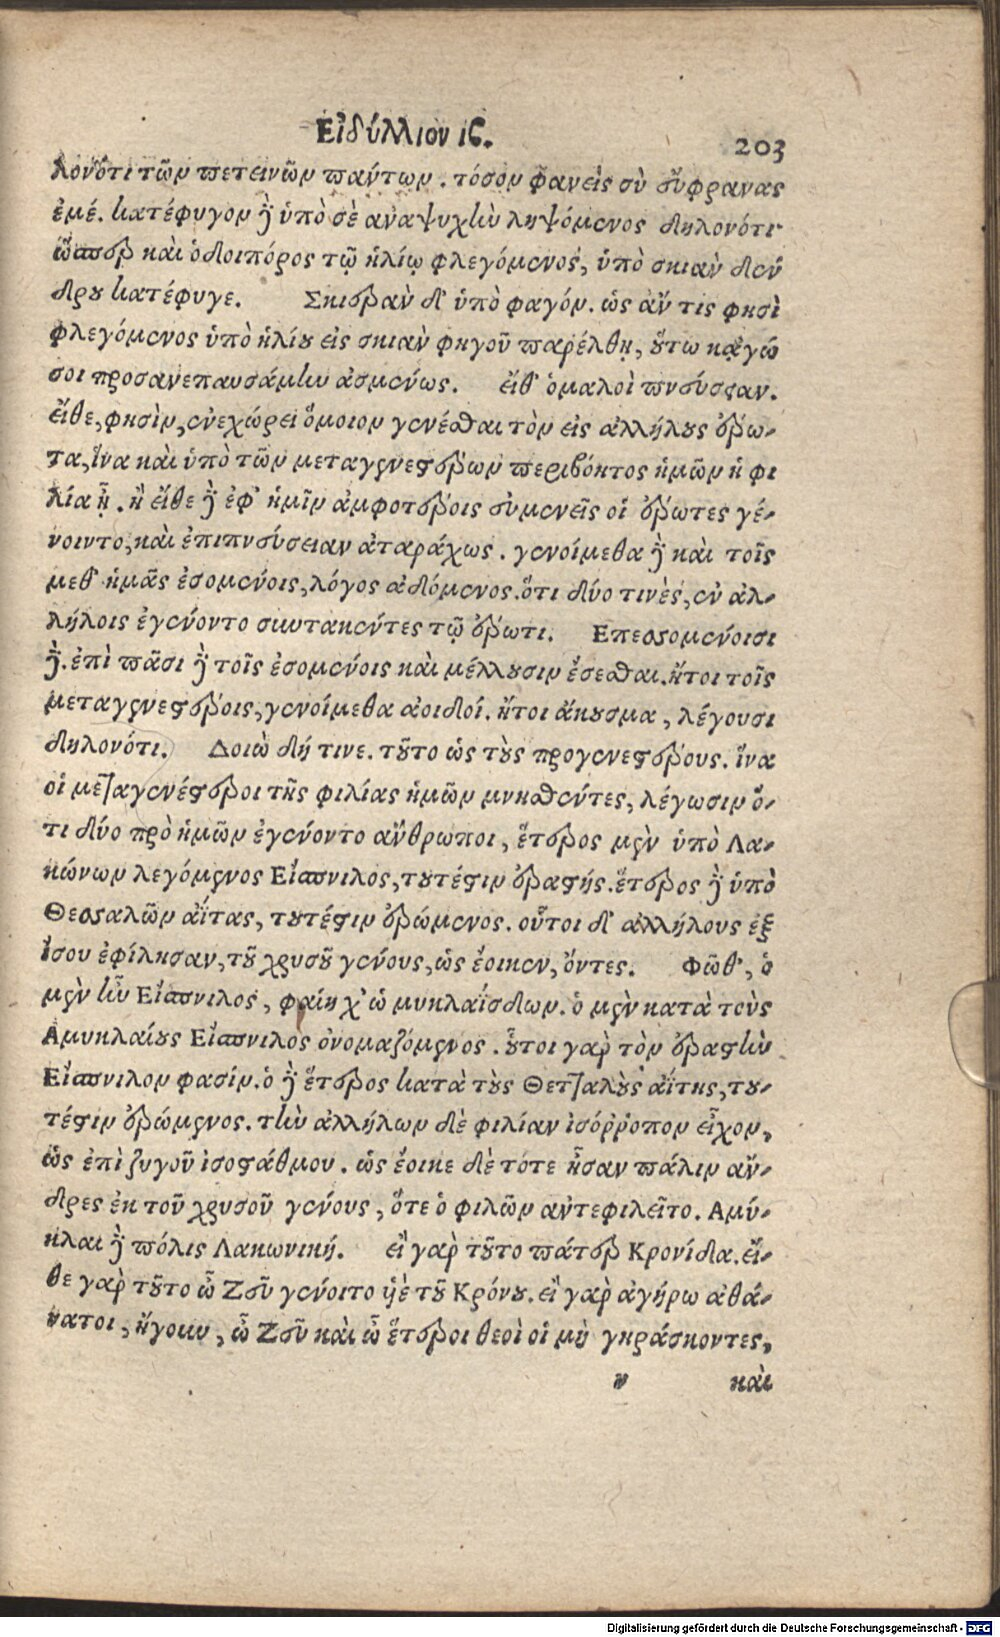 Εἰδύλλιον ις.
203
λονότι τῶν πετεινῶν πάντων. τόσον φανεὶς σὺ εὔφρανας
ἐμέ. κατέφυγον δὲ ὑπὸ σὲ ἀναψυχὴν ληψόμενος δηλονότι
ὥσπερ καὶ ὁδοιπόρος τῷ ἡλίῳ φλεγόμενος, ὑπὸ σκιὰν δέν
δρου κατέφυγε. Σκιερὰν δ' ὑπὸ φαγόν. ὡς ἄν τις φησὶ
φλεγόμενος ὑπὸ ἡλίου εἰς σκιὰν φηγοῦ παρέλθῃ, οὕτω κᾀγώ
σοι προσανεπαυσάμην ἀσμένως. εἴθ' ὁμαλοὶ πνεύσειαν.
εἴθε, φησὶν, ἐνεχώρει ὅμοιον γενέσθαι τὸν εἰς ἀλλήλους ἔρω-
τα, ἵνα καὶ ὑπὸ τῶν μεταγενεστέρων περιβόητος ἡμῶν ἡ φι
λία ᾖ. ἢ εἴθε δὲ ἐφ' ἡμῖν ἀμφοτέροις εὐμενεῖς οἱ ἔρωτες γέ-
νοιντο, καὶ ἐπιπνεύσειαν ἀταράχως. γενοίμεθα δὲ καὶ τοῖς
μεθ' ἡμᾶς ἐσομένοις, λόγος ᾀδόμενος. ὅτι δύο τινὲς, ἐν ἀλ-
λήλοις ἐγένοντο συντακέντες τῷ ἔρωτι. Επεσσομένοισι
δὲ. ἐπὶ πᾶσι δὲ τοῖς ἐσομένοις καὶ μέλλουσιν ἔσεσθαι. ἤτοι τοῖς
μεταγενεστέροις, γενοίμεθα ἀοιδοί. ἤτοι ἄκουσμα, λέγουσι
δηλονότι. Δοιὼ δή τινε. τοῦτο ὡς τοὺς προγενεστέρους. ἵνα
οἱ μεταγενέστεροι τῆς φιλίας ἡμῶν μνησθέντες, λέγωσιν ὅ-
τι δύο πρὸ ἡμῶν ἐγένοντο ἄνθρωποι, ἕτερος μὲν ὑπὸ Λα-
κώνων λεγόμενος Εἴσπνιλος, τουτέστιν ἐραστής. ἕτερος δὲ ὑπὸ
Θεσσαλῶν ἀΐτας, τουτέστιν ἐρώμενος. οὗτοι δ' ἀλλήλους ἐξ
ἴσου ἐφίλησαν, τοῦ χρυσοῦ γένους, ὡς ἔοικεν, ὄντες. Φῶθ', ὁ
μὲν ἦν Εἴσπνιλος, φαίη χ' ὡ μυκλαΐσδων. ὁ μὲν κατὰ τοὺς
Αμυκλαίους Εἴσπνιλος ὀνομαζόμενος. οὗτοι γὰρ τὸν ἐραστὴν
Εἴσπνιλον φασίν. ὁ δὲ ἕτερος κατὰ τοὺς Θετταλοὺς ἀΐτης, του-
τέστιν ἐρώμενος. τὴν ἀλλήλων δὲ φιλίαν ἰσόῤῥοπον εἶχον,
ὡς ἐπὶ ζυγοῦ ἰσοστάθμου. ὡς ἔοικε δὲ τότε ἦσαν πάλιν ἄν-
δρες ἐκ τοῦ χρυσοῦ γένους, ὅτε ὁ φιλῶν ἀντεφιλεῖτο. Αμύ-
κλαι δὲ πόλις Λακωνική. εἰ γὰρ τοῦτο πάτερ Κρονίδα. εἴ-
θε γὰρ τοῦτο ὦ Ζεῦ γένοιτο υἱὲ τοῦ Κρόνου. εἰ γὰρ ἀγήρω ἀθά-
νατοι, ἤγουν, ὦ Ζεῦ καὶ ὦ ἕτεροι θεοὶ οἱ μὴ γηράσκοντες,
υ καὶ
Digitalisierung gefördert durch die Deutsche Forschungsgemeinschaft - DFG